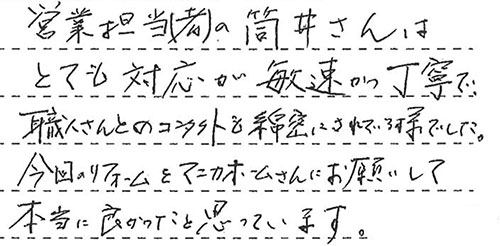 営業担当(者)の筒井さんは
とても対応が敏速かつ丁寧で、
職人さんとのコンタクトも綿密にされている様でした。
今回のリフォームをマニカホームさんにお願いして
本当に良かったと思っています。